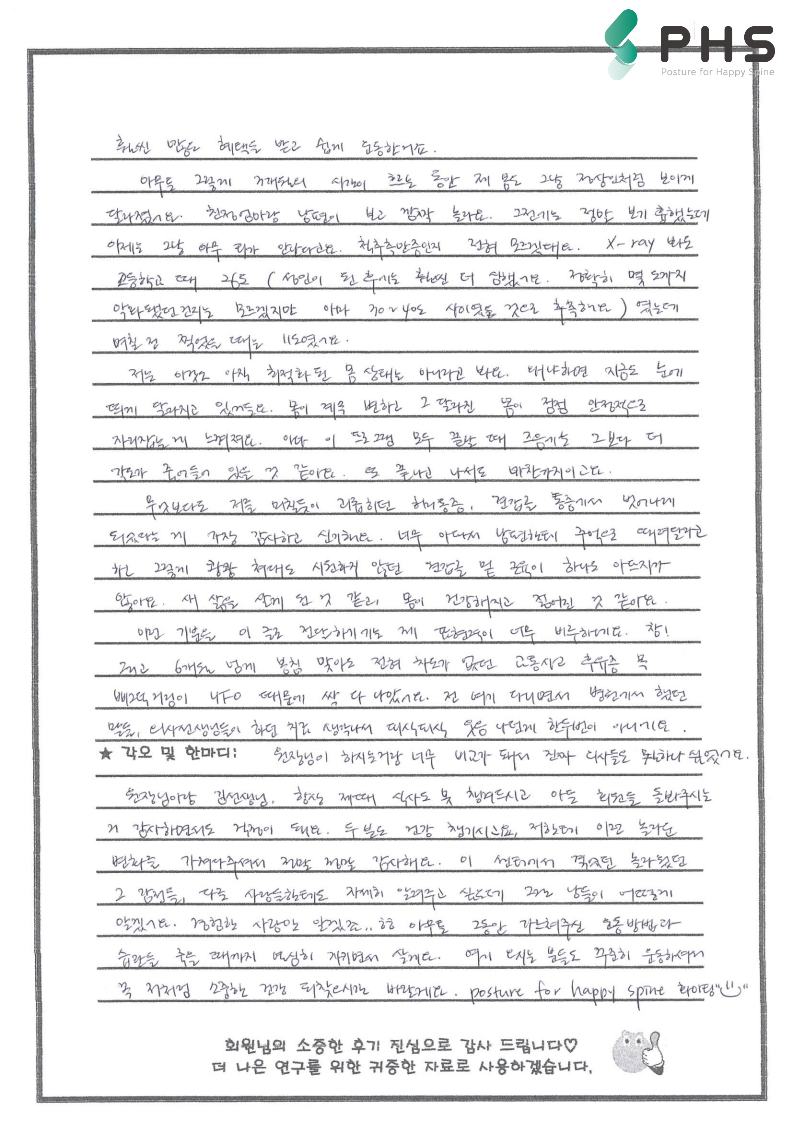 PHS
Posture for Happy Spine
훨씬 많은 혜택을 받고 쉽게 운동한거죠.
아무튼 그렇게 거래하며 시간이 흐르는 동안 제 몸도 그냥 정상인처럼 보이게
달라졌어요. 친정엄마랑 남편이 보고 깜짝 놀라요. 그전에는 정말 보기 흉했는데
이제는 그냥 아무 티가 안난다고요. 척추측만증인지 전혀 모르겠대요. X-ray 봐도
고등학교 때 26도 (성인이 된 후에는 훨씬 더 심했어요. 정확히 몇 도까지
악화됐었던건지는 모르겠지만 아마 30~40도 사이였을 것으로 추측해요) 였는데
며칠 전 찍었을 때는 11도였어요.
저는 이것도 아직 최적화된 몸 상태는 아니라고 봐요. 왜냐하면 지금도 눈에
띄게 달라지고 있거든요. 몸이 계속 변하고 그 달라진 몸이 점점 안정적으로
자리잡는게 느껴져요. 아마 이 프로그램 모두 끝날 때 즈음에는 그보다 더
각도가 줄어들어 있을 것 같아요. 또 끝나고 나서도 마찬가지이고요.
무엇보다도 저를 미칠듯이 괴롭히던 허리통증, 견갑골 통증에서 벗어나게
되었다는 게 가장 감사하고 신기해요. 너무 아파서 남편한테 주먹으로 때려달라고
하고 그렇게 쾅쾅 쳐대도 시원하지 않던 견갑골 밑 근육이 하나도 아프지가
않아요. 새 삶을 살게 된 것 같고, 몸이 건강해지고 젊어진 것 같아요.
이런 기분을 이 글로 전달하기에는 제 표현력이 너무 비루하네요. 참!
그리고 6개월 넘게 봉침 맞아도 전혀 차도가 없었던 교통사고 후유증 목
삐그덕거림이 UFO 때문에 싹 다 나았어요. 전 여기 다니면서 병원에서 했던
말들, 의사선생님들이 하던 치료 생각나서 피식피식 웃음 나던게 한두번이 아니에요.
★ 각오 및 한마디: 원장님이 하시는거랑 너무 비교가 돼서 진짜 의사들도 뭣하나 싶었어요.
원장님이랑 김선생님, 항상 제때 식사도 못 챙겨드시고 아픈 회원들 돌봐주시는
거 감사하면서도 걱정이 돼요. 두 분도 건강 챙기시고요, 저한테 이런 놀라운
변화를 가져다주셔서 정말 정말 감사해요. 이 센터에서 겪었던 놀라웠던
그 감정들, 다른 사람들한테도 자세히 알려주고 싶은데 그걸 남들이 어떻게
알겠어요. 경험한 사람만 알겠죠.. ㅎㅎ 아무튼 그동안 가르쳐주신 운동방법과
습관들 죽을 때까지 열심히 지키면서 살게요. 여기 오시는 분들도 꾸준히 운동하셔서
꼭 저처럼 소중한 건강 되찾으시길 바랄게요. posture for happy spine 화이팅
회원님의 소중한 후기 진심으로 감사 드립니다♡
더 나은 연구를 위한 귀중한 자료로 사용하겠습니다.